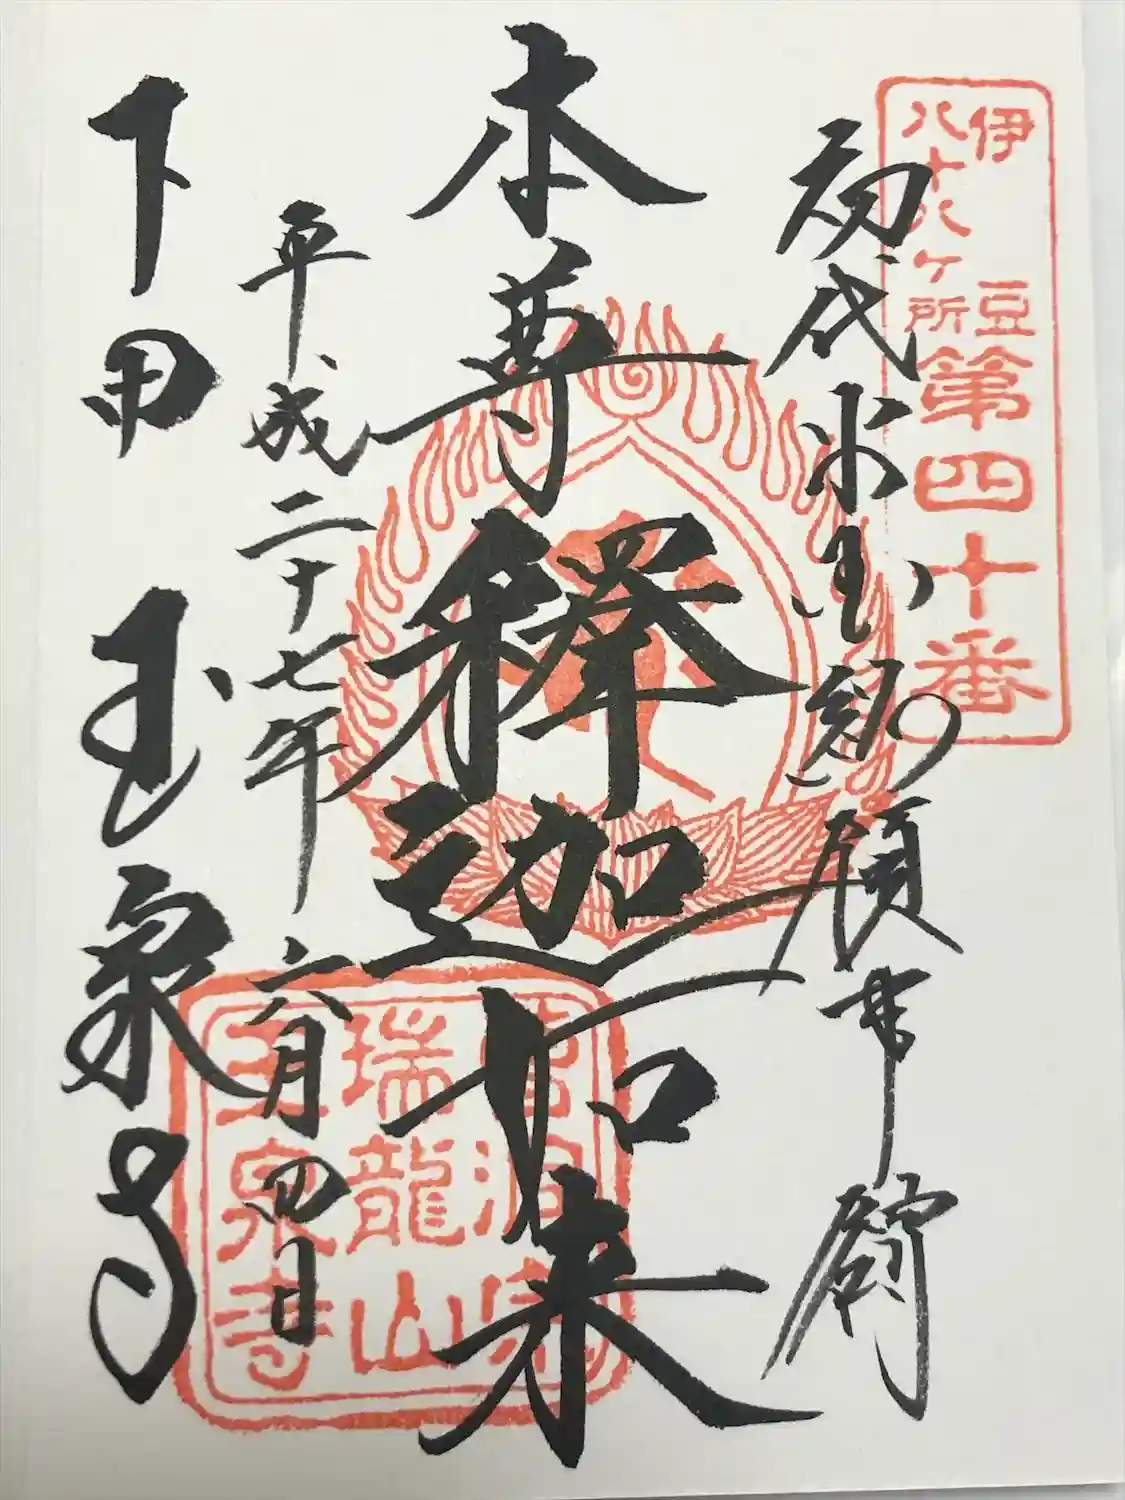 伊豆
八十八ケ所
第四十番
初代米国総領事館
本尊釋迦如来
平成二十七年六月四日
下田 玉泉寺
曹洞宗
瑞龍山
玉泉寺